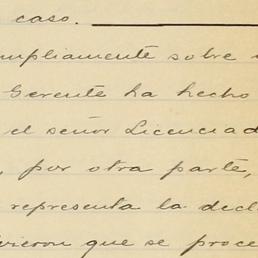 caso.
mpliamente sobre
Gerente ha hecho
el señor Licenciad
, por otra parte,
representa la decl
vieron que se proce